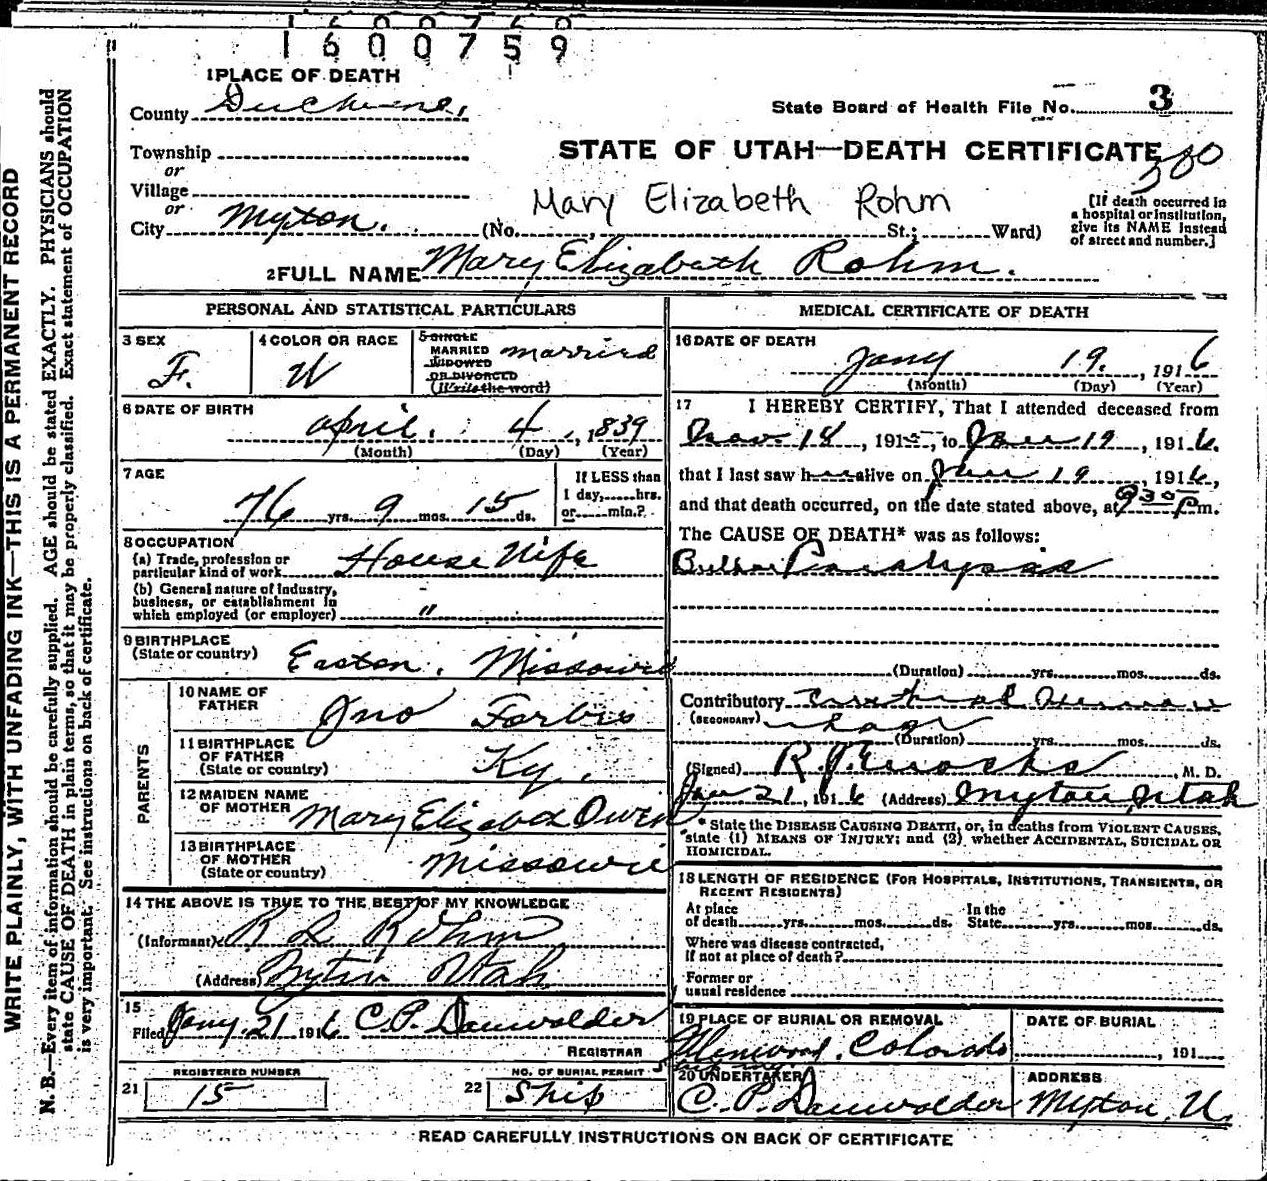 1600759
1 PLACE OF DEATH
County Duchesne,
State Board of Health File No. 3
Township
or
Village
or
City Myton.
STATE OF UTAH—DEATH CERTIFICATE
380
Mary Elizabeth Rohm
(No. , St.; Ward)
[If death occurred in
a hospital or institution,
give its NAME instead
of street and number.]
2 FULL NAME Mary Elizabeth Rohm.
PERSONAL AND STATISTICAL PARTICULARS
3 SEX
F.
4 COLOR OR RACE
W
5 SINGLE
MARRIED
WIDOWED
OR DIVORCED
(Write the word)
married
6 DATE OF BIRTH
April. 4, 1839
(Month) (Day) (Year)
7 AGE
76 yrs. 9 mos. 15 ds.
If LESS than
1 day, hrs.
or min.?
8 OCCUPATION
(a) Trade, profession or
particular kind of work House Wife
(b) General nature of Industry,
business, or establishment in
which employed (or employer) "
9 BIRTHPLACE
(State or country) Easton, Missouri
PARENTS
10 NAME OF
FATHER Jno Forbis
11 BIRTHPLACE
OF FATHER
(State or country) Ky.
12 MAIDEN NAME
OF MOTHER Mary Elizabeth Owen
13 BIRTHPLACE
OF MOTHER
(State or country) Missourie
14 THE ABOVE IS TRUE TO THE BEST OF MY KNOWLEDGE
(Informant) R L Rohm
(Address) Myton Utah
15
Filed Jany. 21 1916 C.P. Dannwolder
REGISTRAR
21 REGISTERED NUMBER
15
22 NO. OF BURIAL PERMIT
Ship
MEDICAL CERTIFICATE OF DEATH
16 DATE OF DEATH
Jany 19., 1916
(Month) (Day) (Year)
17 I HEREBY CERTIFY, That I attended deceased from
Nov. 14, 1915, to Jan 19, 1916.
that I last saw her alive on Jan 19, 1916,
and that death occurred, on the date stated above, at 930 P.m.
The CAUSE OF DEATH* was as follows:
Bulbar Paralysis
(Duration) yrs. mos. ds.
Contributory
(SECONDARY)
(Duration) yrs. mos. ds.
(Signed) R.J. Enochs, M. D.
Jan 21, 1916 (Address) Myton, Utah
* State the DISEASE CAUSING DEATH, or, in deaths from VIOLENT CAUSES,
state (1) MEANS OF INJURY; and (2) whether ACCIDENTAL, SUICIDAL OR
HOMICIDAL.
18 LENGTH OF RESIDENCE (FOR HOSPITALS, INSTITUTIONS, TRANSIENTS, OR
RECENT RESIDENTS)
At place
of death yrs. mos. ds.
In the
State yrs. mos. ds.
Where was disease contracted,
If not at place of death?
Former or
usual residence
19 PLACE OF BURIAL OR REMOVAL
Glenwood, Colorado
DATE OF BURIAL
, 191
20 UNDERTAKER
C. P. Dannwolder
ADDRESS
Myton, U.
READ CAREFULLY INSTRUCTIONS ON BACK OF CERTIFICATE
WRITE PLAINLY, WITH UNFADING INK—THIS IS A PERMANENT RECORD
N. B.—Every item of information should be carefully supplied. AGE should be stated EXACTLY. PHYSICIANS should
state CAUSE OF DEATH in plain terms, so that it may be properly classified. Exact statement of OCCUPATION
is very important. See instructions on back of certificate.